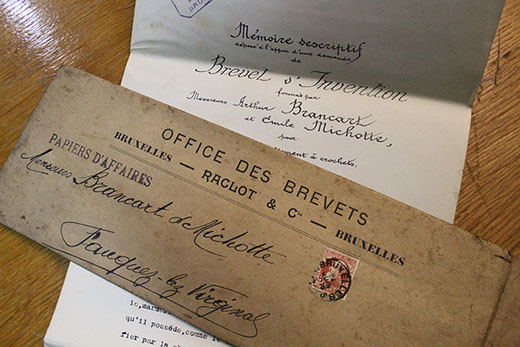 BRU
Mémoire descriptif
déposé à l'appui d'une demande
de
Brevet d'Invention
formée par
Messieurs Arthur Brancart
et Emile Michotte,
pour
à crochets.
OFFICE DES BREVETS
BRUXELLES — RACLOT & Cie — BRUXELLES
PAPIERS D'AFFAIRES
Messieurs Brancart de Michotte
Fauquez-lez-Virginal
BRUXELLES
qu'il possède, comme le
fier par la